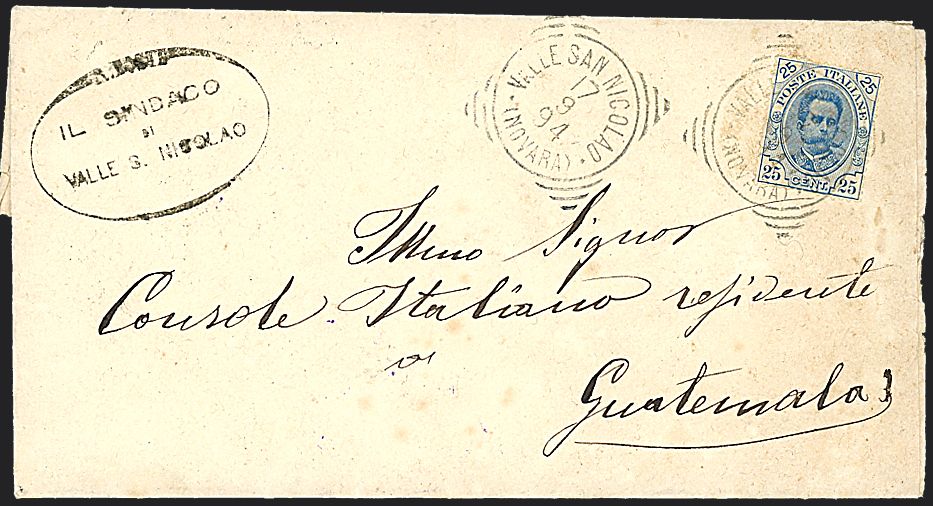 R. POSTE
IL SINDACO
DI
VALLE S. NICOLAO
VALLE SAN NICOLAO
17
9
94
(NOVARA)
VALLE
(NOVARA)
25 25
POSTE ITALIANE
25 CENT. 25
Illmo Signor
Console Italiano residente
Guatemala